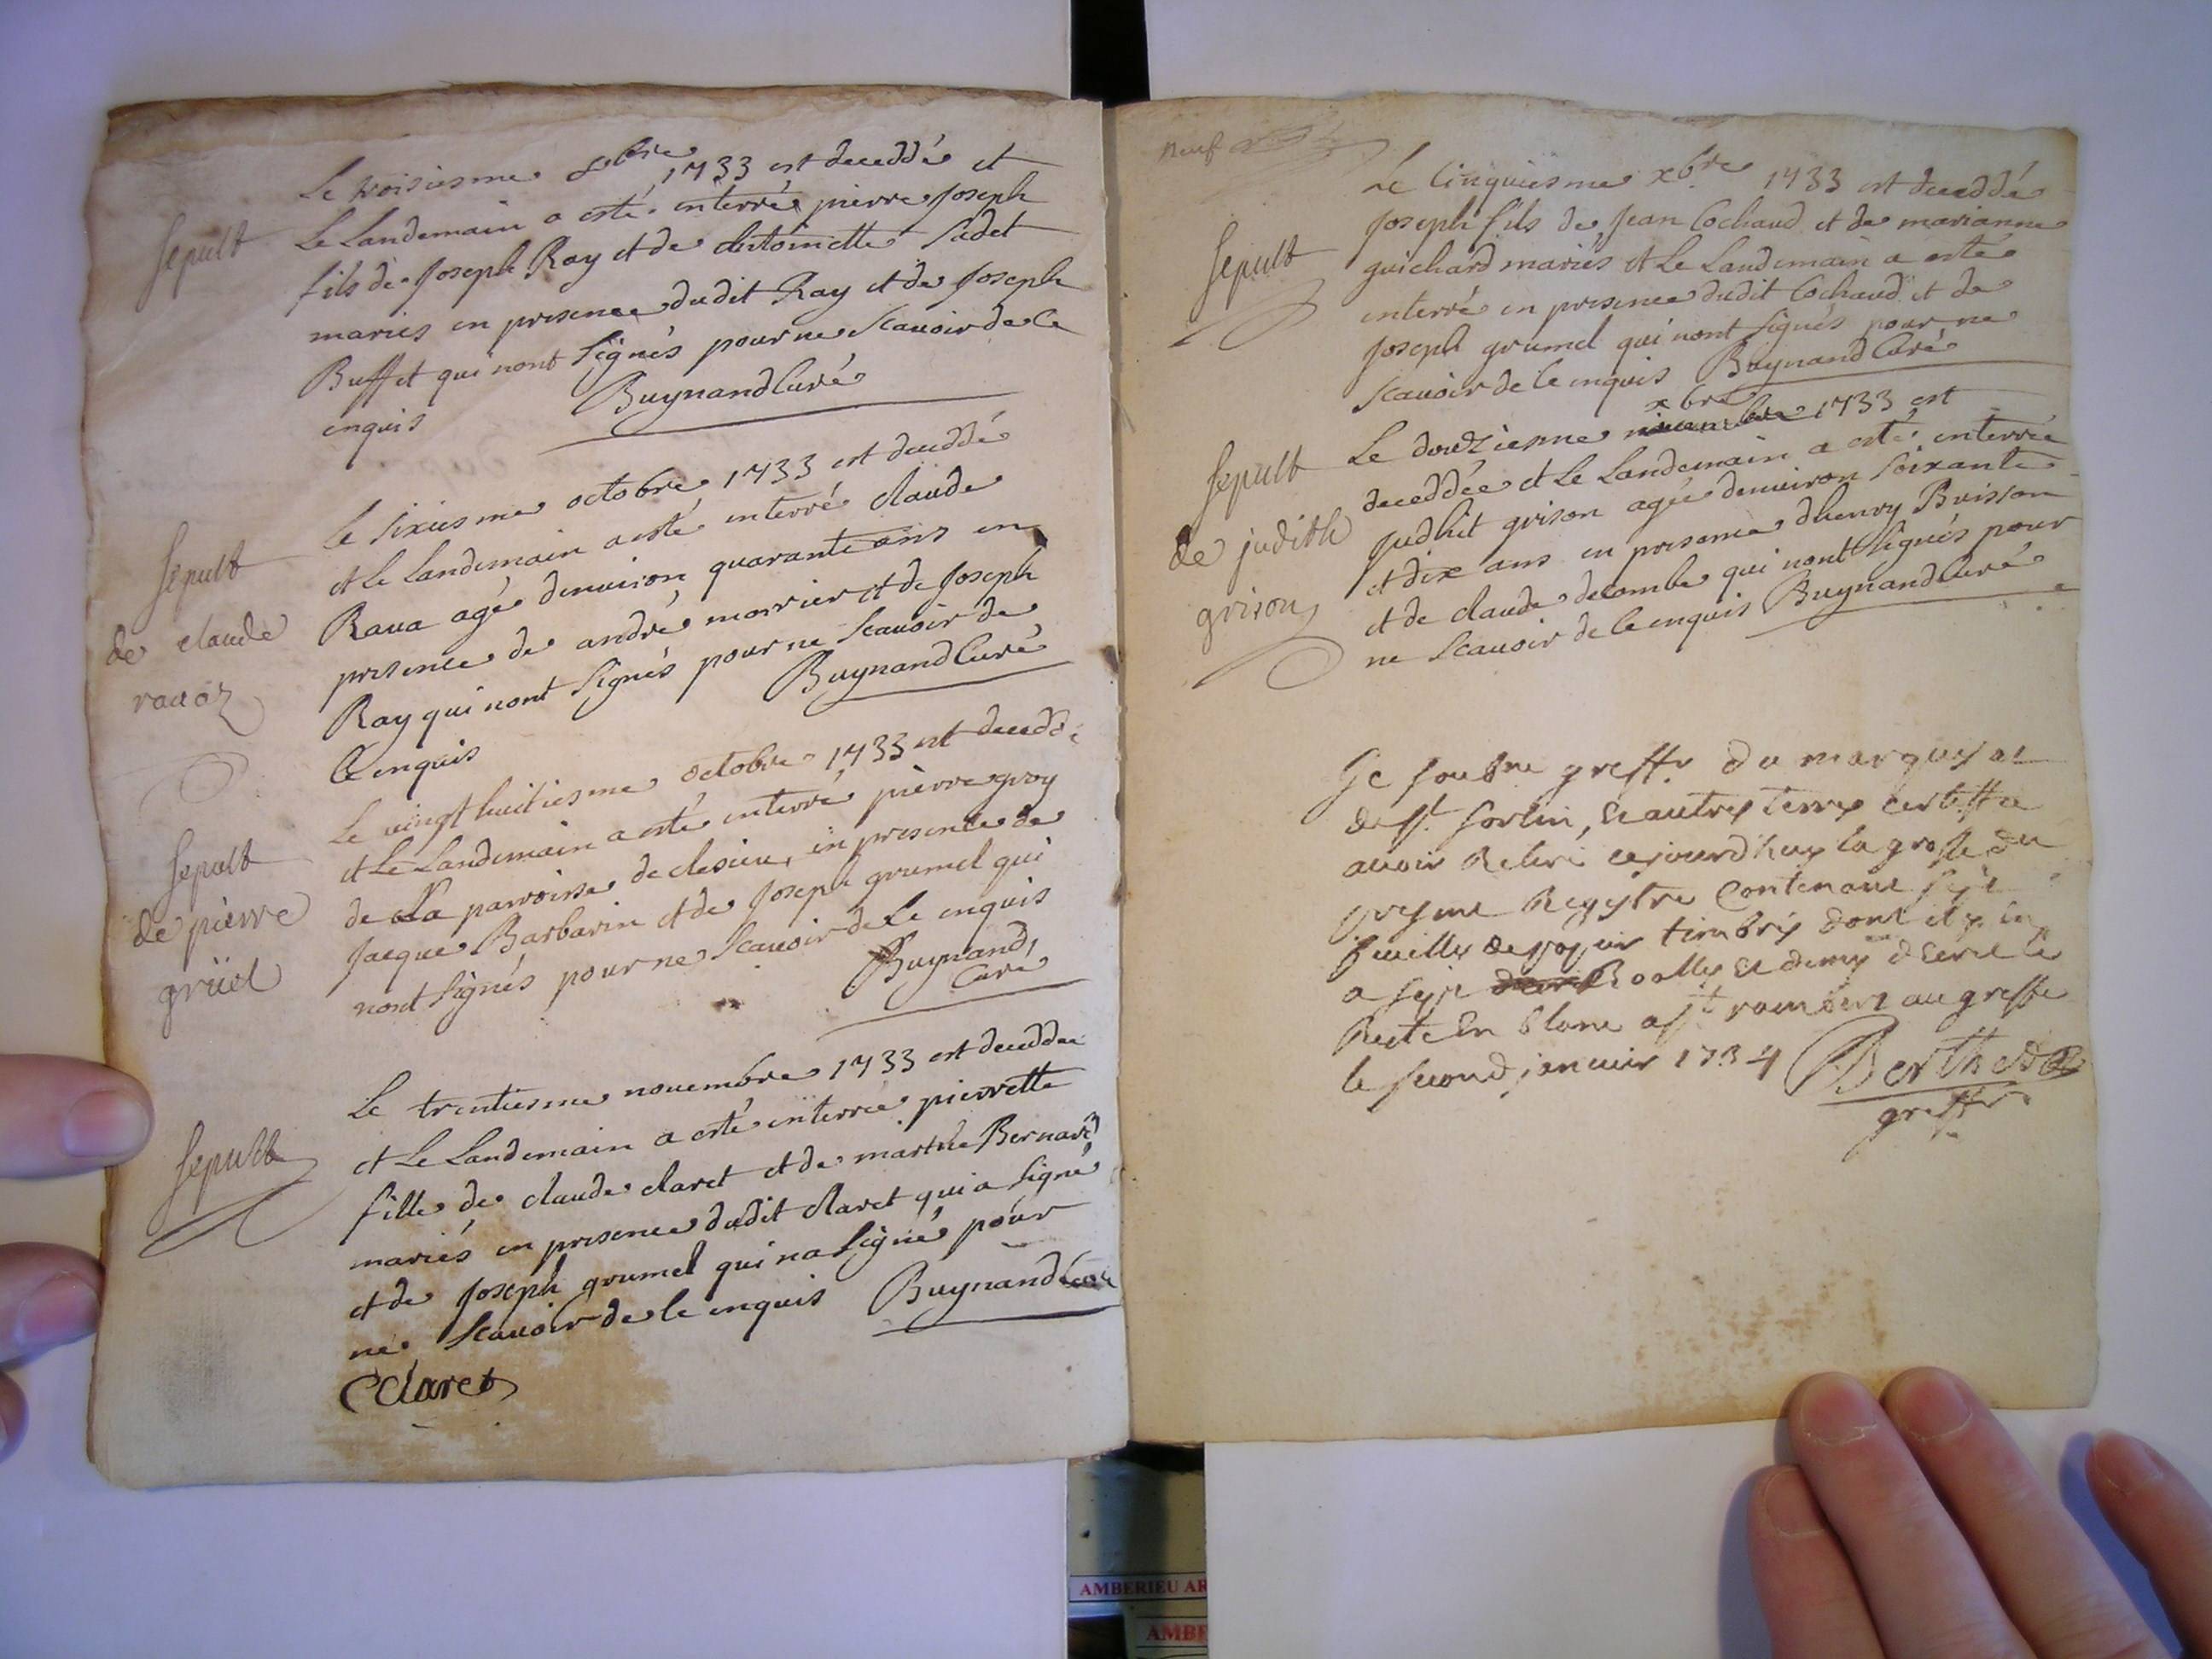 Sepult
Le troisiesme 8bre 1733 est deceddé et
Le Landemain a esté interré pierre Joseph
fils de Joseph Ray et de antoinette Cadet
mariés en presence dudit Ray et de Joseph
Buffet qui nont signés pour ne scauoir de ce
enquis Buynand Curé
Sepult
de claude
rauoz
Le sixiesme octobre 1733 est deceddé
et le Landemain a esté interré claude
Raua agé denuiron quarante ans en
presence de andré morrier et de Joseph
Ray qui nont signés pour ne scauoir de
Ce enquis Buynand Curé
Sepult
de pierre
grüel
Le uingt huitiesme octobre 1733 est deceddé
et Le Landemain a esté interré pierre
de La parroisse de in presence de
Jacque Barbarin et de Joseph grumel qui
nont signés pour ne scauoir de Ce enquis
Buynand,
Curé
Sepult
Le trentiesme nouembre 1733 est deceddee
et Le Landemain a esté interrée pierrette
fille de claude claret et de marthe Bernard
mariés en presence dudit claret qui a signé
et de Joseph grumel qui na signé pour
ne scauoir de ce enquis Buynand Curé
C Claret
neuf
Sepult
Le Cinquiesme xbre 1733 est deceddé
Joseph fils de Jean Cochaud et de marianne
guichard mariés et Le Landemain a esté
interré en presence dudit Cochaud et de
Joseph grumel qui nont signés pour ne
scauoir de Ce enquis Buynand Curé
Sepult
de judith
grison
xbre
Le douziesme nouembre 1733 est
deceddée et Le Landemain a esté interrée
Judhit grison agée denuiron soixante
et dix ans en presence dhenry Buisson
et de claude decombe qui nont signés pour
ne scauoir de Ce enquis Buynand Curé
Je soubne greffr du marquisat
de st sorlin, et autres terres certiffie
auoir Retiré cejourdhuy la grosse du
present Registre Contenant seize
feuilles de papier timbrés dont il y en
a seize Roolles et demy decrit le
Reste en blanc a st rambert au greffe
le second januier 1734 Berthet
greffr
AMBERIEU AR
AMBE